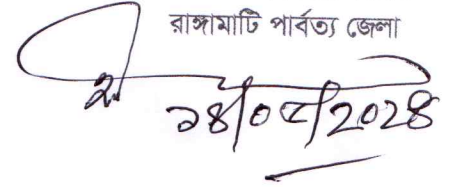 রাঙ্গামাটি পার্বত্য জেলা
১৪/০৫/২০২৪